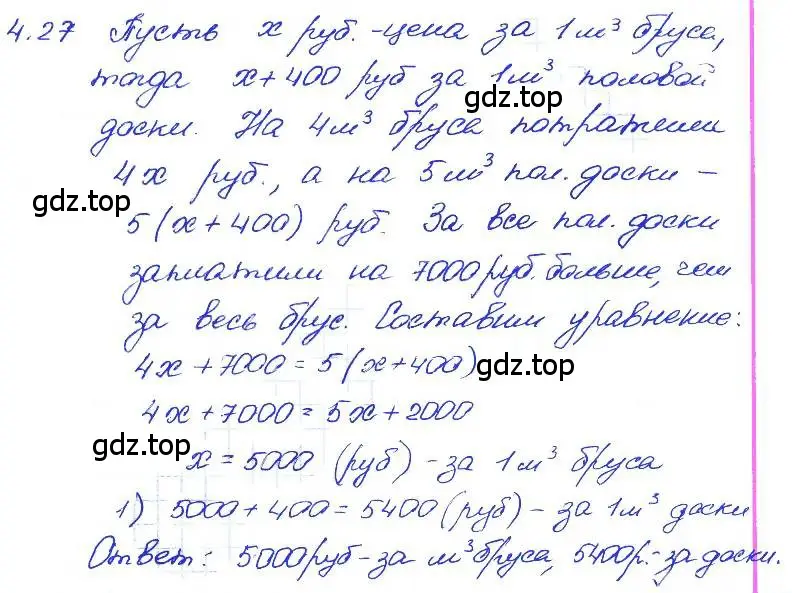 4.27 Пусть x руб. - цена за 1 м³ бруса,
тогда x+400 руб за 1м³ половой
gdz.top
доски. На 4м³ бруса потратили
4x руб., а на 5м³ пол. доски -
gdz.top
5(x+400) руб. За все пол. доски
заплатили на 7000 руб. больше, чем
за весь брус. Составим уравнение:
4x+7000 = 5(x+400)
gdz.top
4x+7000 = 5x+2000
gdz.top
x = 5000 (руб) - за 1м³ бруса
1) 5000+400 = 5400 (руб) - за 1м³ доски
Ответ: 5000руб - за м³ бруса, 5400р. - за доски.